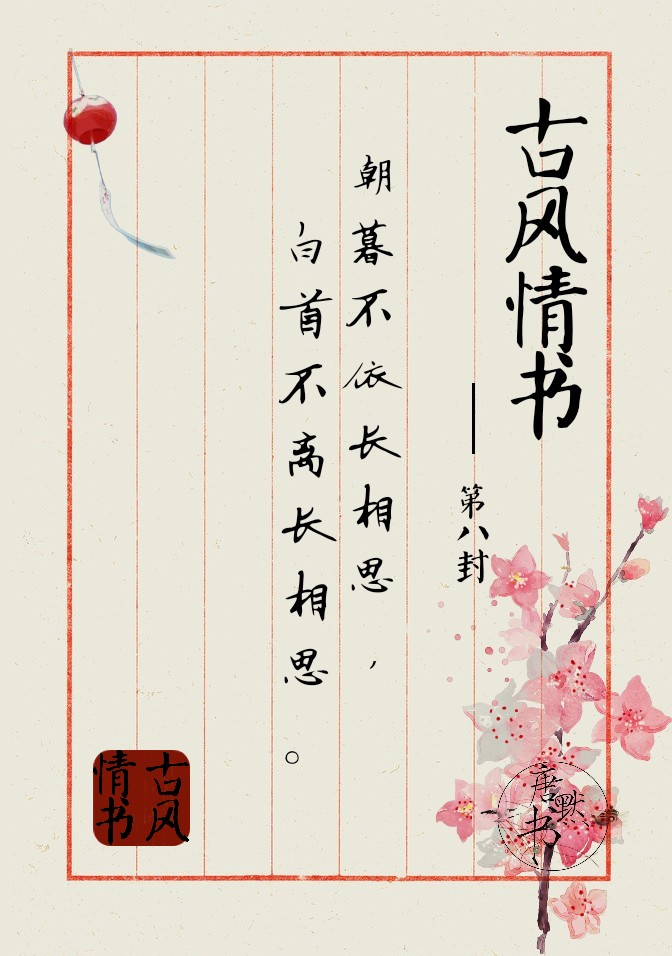 古风情书
——第八封
朝暮不依长相思，
白首不离长相思。
古风
情书
唐默书